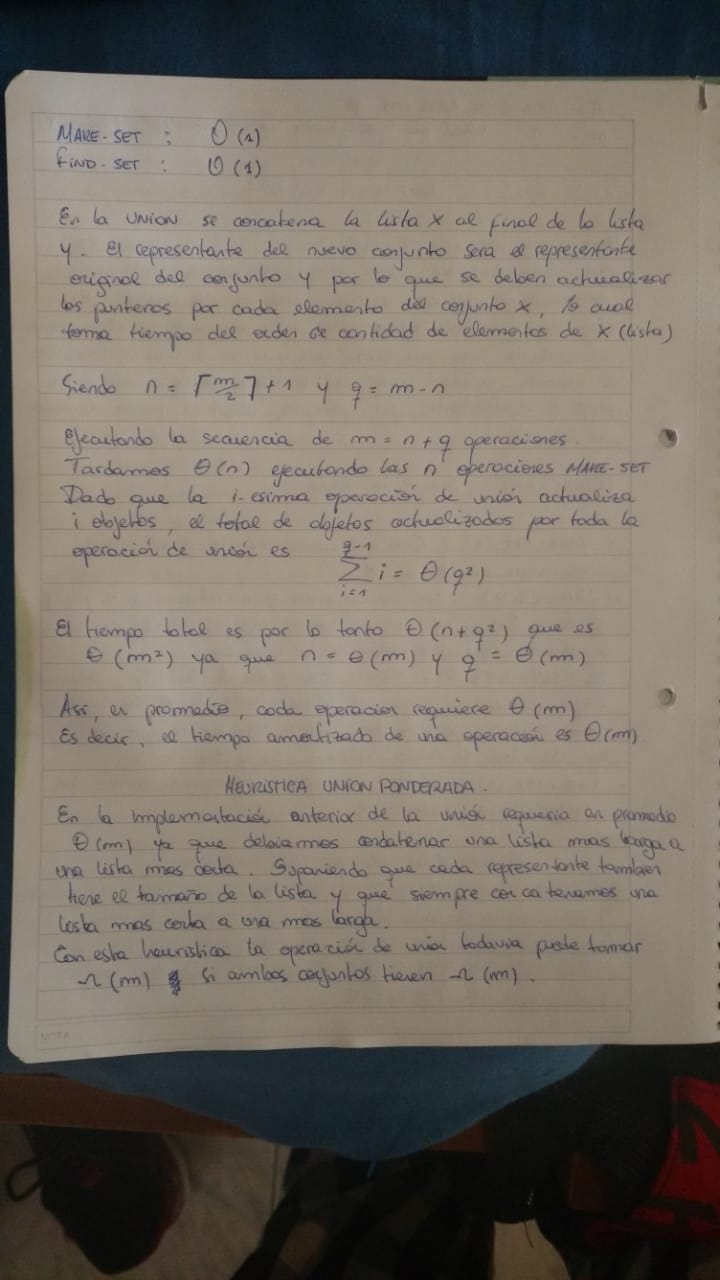 MAKE-SET : O(1)
FIND-SET : O(1)
En la UNION se concatena la lista X al final de la lista
Y. El representante del nuevo conjunto será el representante
original del conjunto Y por lo que se deben actualizar
los punteros por cada elemento del conjunto X, lo cual
toma tiempo del orden de cantidad de elementos de X (lista)
Siendo n = ⌈m/2⌉ + 1 y q = m - n
Ejecutando la secuencia de m = n + q operaciones.
Tardamos Θ(n) ejecutando las n operaciones MAKE-SET
Dado que la i-esima operación de unión actualiza
i objetos, el total de objetos actualizados por toda la
operación de unión es ∑_{i=1}^{q-1} i = Θ(q²)
El tiempo total es por lo tanto Θ(n+q²) que es
Θ(m²) ya que n = Θ(m) y q = Θ(m)
Asi, en promedio, cada operacion requiere Θ(m)
Es decir, el tiempo amortizado de una operación es Θ(m)
HEURISTICA UNION PONDERADA.
En la implementación anterior de la unión requeria en promedio
Θ(m) ya que debiarmos concatenar una lista mas larga a
una lista mas corta. Suponiendo que cada representante tambien
tiene el tamaño de la lista y que siempre concatenamos una
lista mas corta a una mas larga.
Con esta heuristica la operación de unión todavia puede tomar
Ω(m) si ambos conjuntos tienen Ω(m).
NOTA